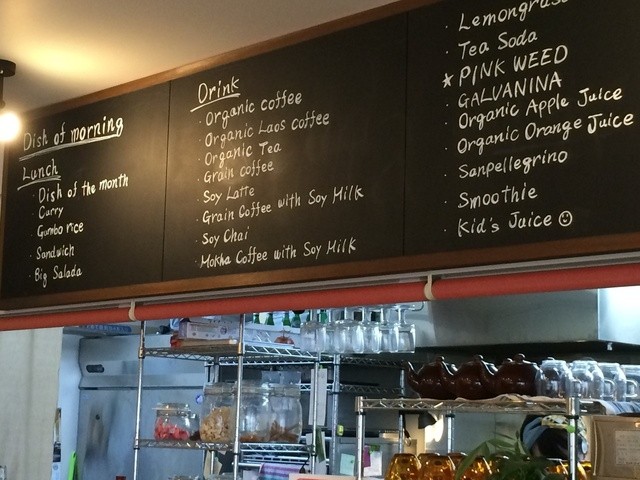 Dish of morning
Lunch
· Dish of the month
· Curry
· Gumbo rice
· Sandwich
· Big Salada
Drink
· Organic coffee
· Organic Laos coffee
· Organic Tea
· Grain coffee
· Soy Latte
· Grain Coffee with Soy Milk
· Soy Chai
· Mokha Coffee with Soy Milk
· Tea Soda
★ PINK WEED
· GALVANINA
Organic Apple Juice
· Organic Orange Juice
· Sanpellegrino
· Smoothie
· Kid's Juice ☺